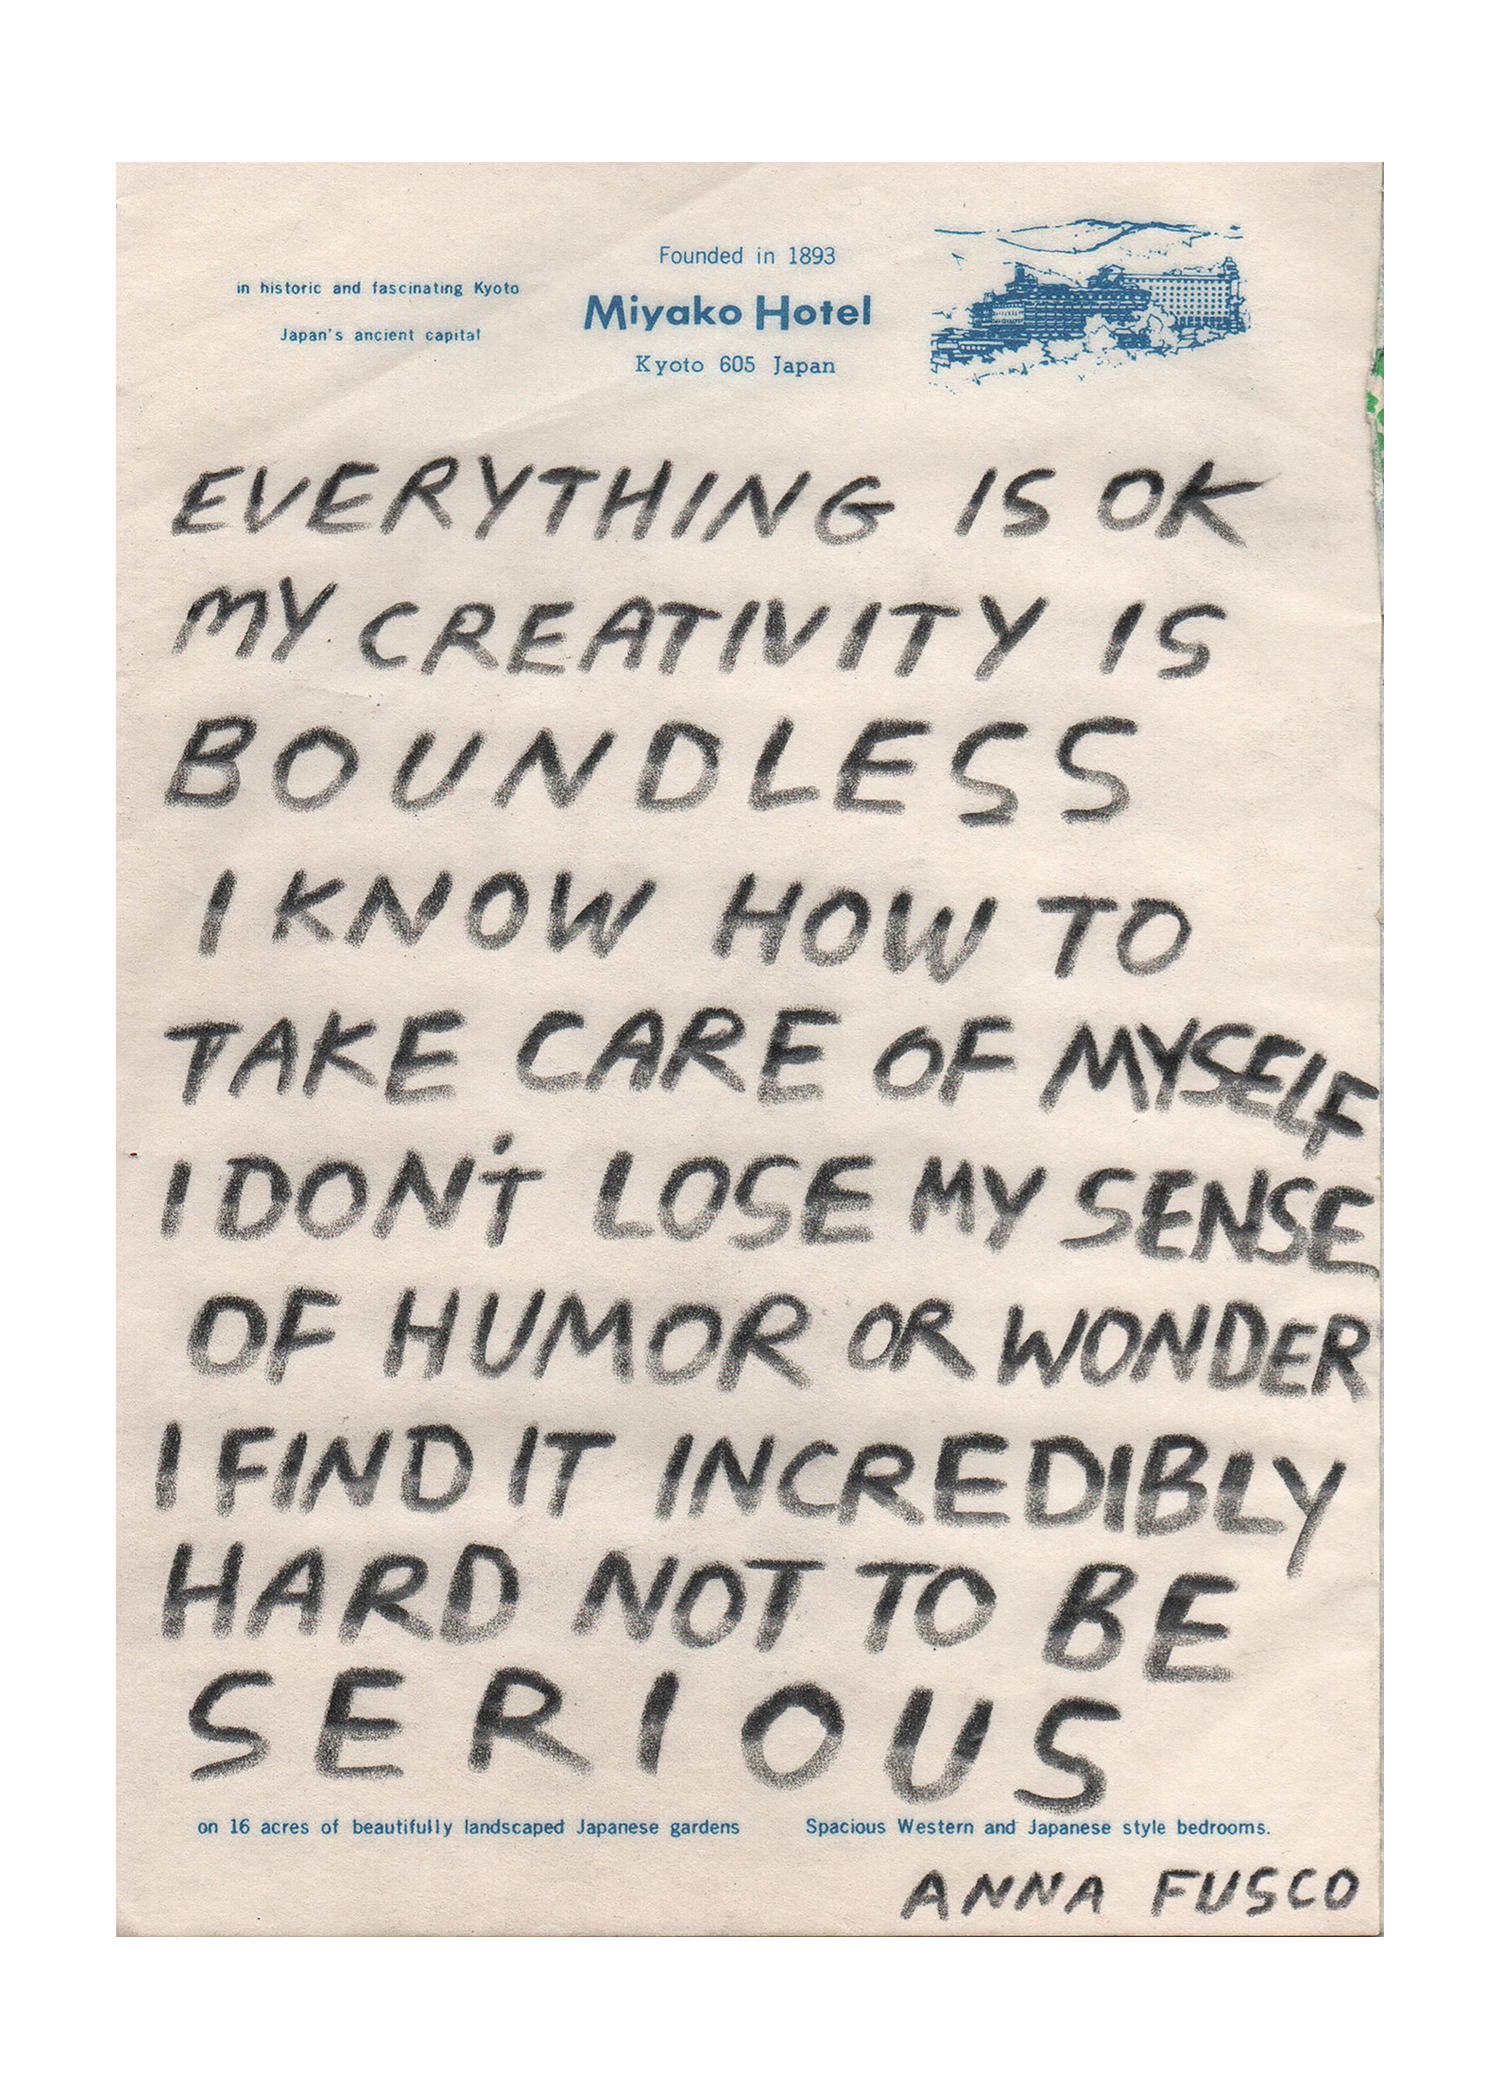 Founded in 1893
in historic and fascinating Kyoto
Miyako Hotel
Japan's ancient capital
Kyoto 605 Japan
EVERYTHING IS OK
MY CREATIVITY IS
BOUNDLESS
I KNOW HOW TO
TAKE CARE OF MYSELF
I DON't LOSE MY SENSE
OF HUMOR OR WONDER
I FIND IT INCREDIBLY
HARD NOT TO BE
SERIOUS
on 16 acres of beautifully landscaped Japanese gardens Spacious Western and Japanese style bedrooms.
ANNA FUSCO